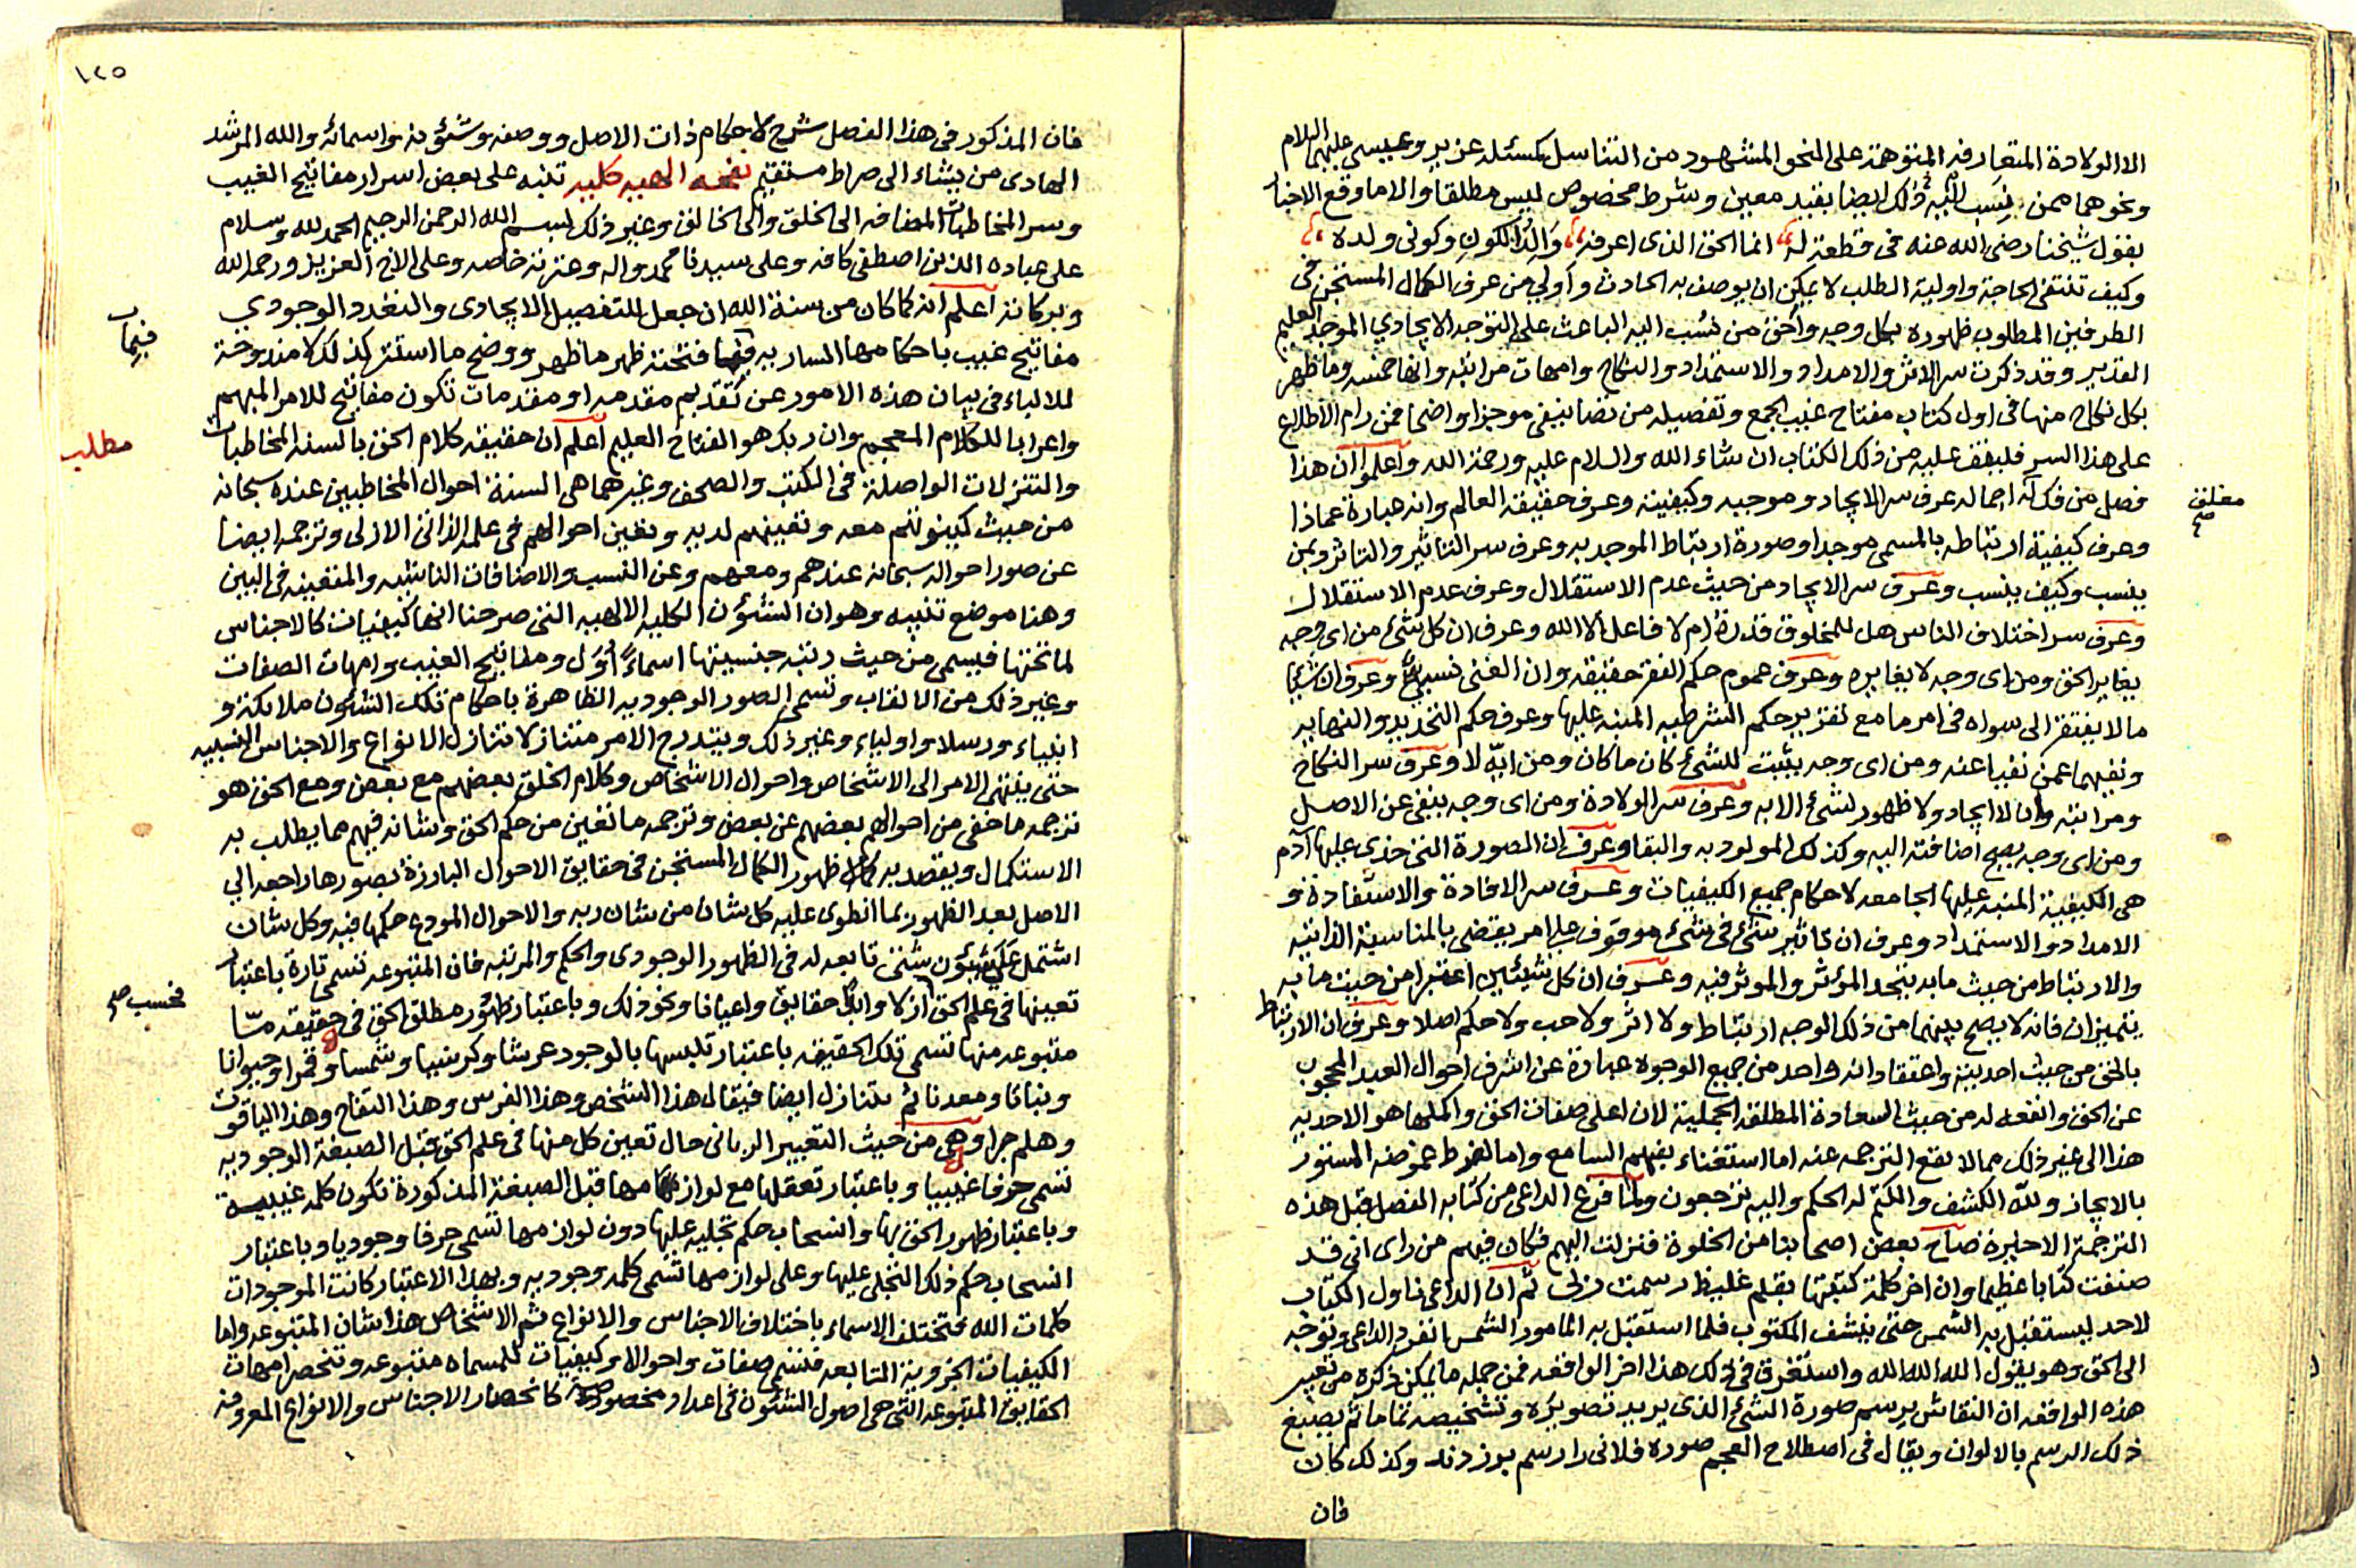 الا الولادة المتعارفه المتوهمة على النحو المشهود من التناسل كمسئله عزير وعيسى عليهما السلام
ونحوهما ممن نسب اليه ذلك ايضا بقيد معين وشرط مخصوص ليس مطلقا والا ما وقع الاخبار
بقول شيخنا رضى الله عنه فى قطعة له انما الحق الذى اعرفه وَالِدُ الكونِ وكونى ولده
وكيف تنتفى الحاجة واولية الطلب لا يمكن ان يوصف به الحادث وأولي من عرف الكمال المستجن فى
الطرفين المطلوب ظهوره بكل وجه وأحق من نُسب اليه الباعث على التوجه الايجادي الموجد العليم
القدير وقد ذكرت سر الاثر والامداد والاستمداد والنكاح وامهات مراتبه وانها خمسه وما ظهر
بكل نكاح منها فى اول كتاب مفتاح غيب الجمع وتفصيله من تصانيفى موجزا واضحا فمن رام الاطلاع
على هذا السر فليقف عليه من ذلك الكتاب ان شاء الله والسلام عليه ورحمة الله واعلموا ان هذا
فصل من فك له اجماله عرف سر الايجاد وموجبه وكيفيته وعرف حقيقة العالم وانه عبارة عماذا
مغلق صح
وعرف كيفية ارتباطه بالمسمى موجدا وصورة ارتباط الموجد به وعرف سر التاثير والتاثر وبمن
ينسب وكيف ينسب وعرف سر الايجاد من حيث عدم الاستقلال وعرف عدم الاستقلال
وعرف سر اختلاف الناس هل للمخلوق قدرة ام لا فاعل الا الله وعرف ان كل شئ من اى وجه
يغاير الحق ومن اى وجه لا يغايره وعرف عموم حكم الفقر حقيقه وان الغنى نسبىّ وعرف ان شيئا
ما لا يفتقر الى سواه فى امر ما مع تقرير حكم الشرطيه المنبه عليها وعرف حكم التحديد والنهايه
ونفيهما عمن نفيا عنه ومن اى وجه يثبت للشئ كان ما كان ومن ايّه لا وعرف سر النكاح
ومراتبه وان لا ايجاد ولا ظهور لشئ الا به وعرف سر الولادة ومن اى وجه ينفى عن الاصل
ومن اى وجه يصح اضافته اليه وكذلك المولود به والبقا وعرف ان الصورة التى حذى عليها آدم
هى الكيفية المنبه عليها الجامعه لاحكام جميع الكيفيات وعرف سر الافادة والاستفادة و
الامداد والاستمداد وعرف ان تاثير شئ فى شئ موقوف على امر يقتضى بالمناسبة الذاتيه
والارتباط من حيث ما به يتحد المؤثر والموثر فيه وعرف ان كل شيئين اعتبرا من حيث ما به
يتميزان فانه لا يصح بينهما من ذلك الوجه ارتباط ولا اثر ولا حب ولا حكم اصلا وعرف ان الارتباط
بالحق من حيث احديته واعتقاد انه واحد من جميع الوجوه عبارة عن اشرف احوال العبد المحجوب
عن الحق وانفعه له من حيث السعادة المطلقة الجملية لان اعلى صفات الحق واكملها هو الاحديه
هذا الى غير ذلك مما لا تقع الترجمه عنه اما استغناء بفهم السامع واما لفرط غموضه المستور
بالايجاز ولله الكشف والكتم له الحكم واليه ترجعون ولما فرغ الداعى من كتابه الفصل قبل هذه
الترجمة الاخيرة صاح بعض اصحابنا من الخلوة فنزلت اليهم فكان فيهم من راى انى قد
صنفت كتابا عظيما وان اخر كلمة كتبتها بقلم غليظ رسمت زلى ثم ان الداعى ناول الكتاب
لاحد ليستقبل به الشمس حتى ينشف المكتوب فلما استقبل به المامور الشمس انفرد الداعى وتوجه
الى الحق وهو يقول الله الله الله واستغرق فى ذلك هذا اخر الواقعه فمن جمله ما يمكن ذكره من تعبير
هذه الواقعه ان النقاش يرسم صورة الشئ الذى يريد تصويره وتشخيصه تماما ثم يصبغ
ذلك الرسم بالالوان ويقال فى اصطلاح العجم صوره فلانى را رسم بر زدند وكذلك كان
فان
١٢٥
فان المذكور فى هذا الفصل شرح لاحكام ذات الاصل ووصفه وشئونه واسمائه والله المرشد
الهادى من يشاء الى صراط مستقيم نفحه الهيه كليه تنبه على بعض اسرار مفاتيح الغيب
وسر المخاطبات المضافه الى الخلق والى الخالق وغير ذلك بسم الله الرحمن الرحيم الحمد لله وسلام
على عباده الذين اصطفى كافه وعلى سيدنا محمد واله وعترته خاصه وعلى الاخ العزيز ورحمه الله
وبركاته اعلم انه كما كان من سنة الله ان جعل للتفصيل الايجادى والتعدد الوجودي
مفاتيح غيب باحكامها الساريه فيما فتحته ظهر ما ظهر ووضح ما استتر كذلك لا مندوحة
فيما
للالباء فى بيان هذه الامور عن تقديم مقدمه او مقدمات تكون مفاتيح للامر المبهم
واعرابا للكلام المعجم وان ربك هو الفتاح العليم اعلم ان حقيقه كلام الحق بالسنه المخاطبات
مطلب
والتنزلات الواصلة فى الكتب والصحف وغيرهما هى السنة احوال المخاطبين عنده سبحانه
من حيث كينونتهم معه وتعينهم لديه وتعين احوالهم فى علمه الذاتى الازلى وترجمه ايضا
عن صور احواله سبحانه عندهم ومعهم وعن النسب والاضافات الناشيه والمتعينه فى البين
وهنا موضع تنبيه وهو ان الشئون الكليه الالهيه التى صرحنا انها كيفيات كالاجناس
لما تحتها فيسمى من حيث رتبه جنسيتها اسماءً اُوَل ومفاتيح الغيب وامهات الصفات
وغير ذلك من الالقاب وتسمى الصور الوجوديه الظاهرة باحكام تلك الشئون ملايكة و
انبياء ورسلا واولياء وغير ذلك ويتدرج الامر متنازلا تنازل الانواع والاجناس النسبيه
حتى ينتهى الامر الى الاشخاص واحوال الاشخاص وكلام الخلق بعضهم مع بعض ومع الحق هو
ترجمه ما خفى من احوالهم بعضهم عن بعض وترجمه ما تعين من حكم الحق وشانه فيهم مما يطلب به
الاستكمال ويقصد به كمال ظهور الكمال المستجن فى حقايق الاحوال البارزة بصورها راجعه الي
الاصل بعد الظهور بما انطوى عليه كل شان من شان ربه والاحوال المودع حكمها فيه وكل شان
اشتمل على شئون شتى تابعه له فى الظهور الوجودى والحكم والمرتبه فان المتبوعه تسمى تارة باعتبار
تعينها فى علم الحق ازلا وابدا حقايق واعيانا ونحو ذلك وباعتبار ظهور مطلق الحق فى حقيقه مّا
فحسب صح
متبوعه منها تسمى تلك الحقيقه باعتبار تلبسها بالوجود عرشا وكرسيا وشمسا وقمرا وحيوانا
ونباتا ومعدنا ثم يتنازل ايضا فيقال هذا الشخص وهذا الفرس وهذا التفاح وهذا الياقوت
وهلم جرا وهى من حيث التعبير الربانى حال تعين كل منها فى علم الحق قبل الصبغة الوجوديه
تسمى حرفا غيبيا وباعتبار تعقلها مع لوازمها قبل الصبغة المذكورة تكون كلمه غيبية
وباعتبار ظهور الحق بها وانسحاب حكم تجليه عليها دون لوازمها تسمى حرفا وجوديا وباعتبار
انسحاب حكم ذلك التجلى عليها وعلى لوازمها تسمى كلمه وجوديه وبهذا الاعتبار كانت الموجودات
كلمات الله فتختلف الاسماء باختلاف الاجناس والانواع ثم الاشخاص هذا شان المتبوعه واما
الكيفيات الجزويه التابعه فتسمى صفات واحوالا وكيفيات للمسماه متبوعه وتنحصر امهات
الحقايق المتبوعه التى هى اصول الشئون فى اعداد مخصوصة كانحصار الاجناس والانواع المعروفه